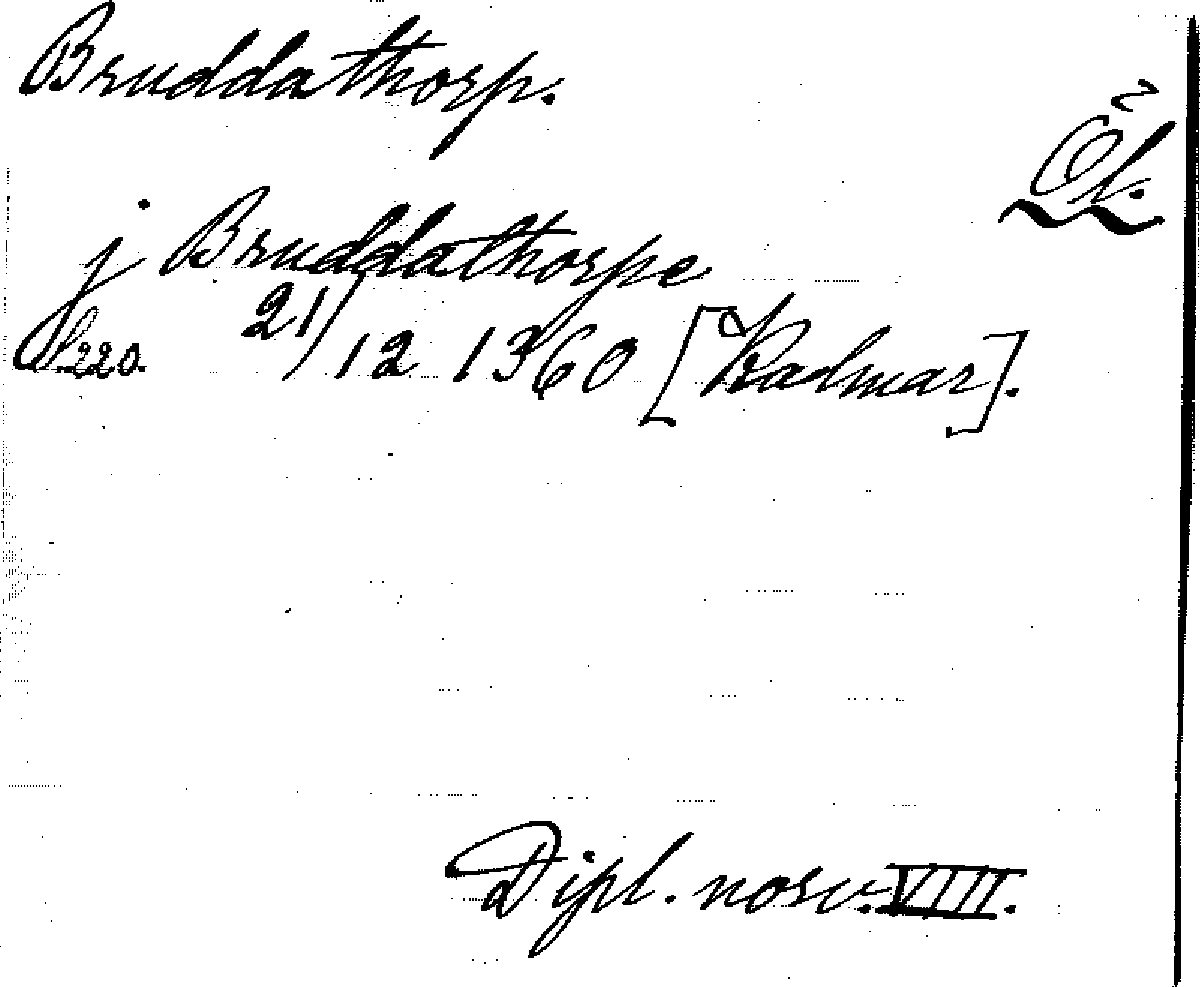 Bruddathorp.
Öl.
j Bruddathorpe
s. 220. 21/12 1360 [Kalmar].
Dipl. norv. VIII.